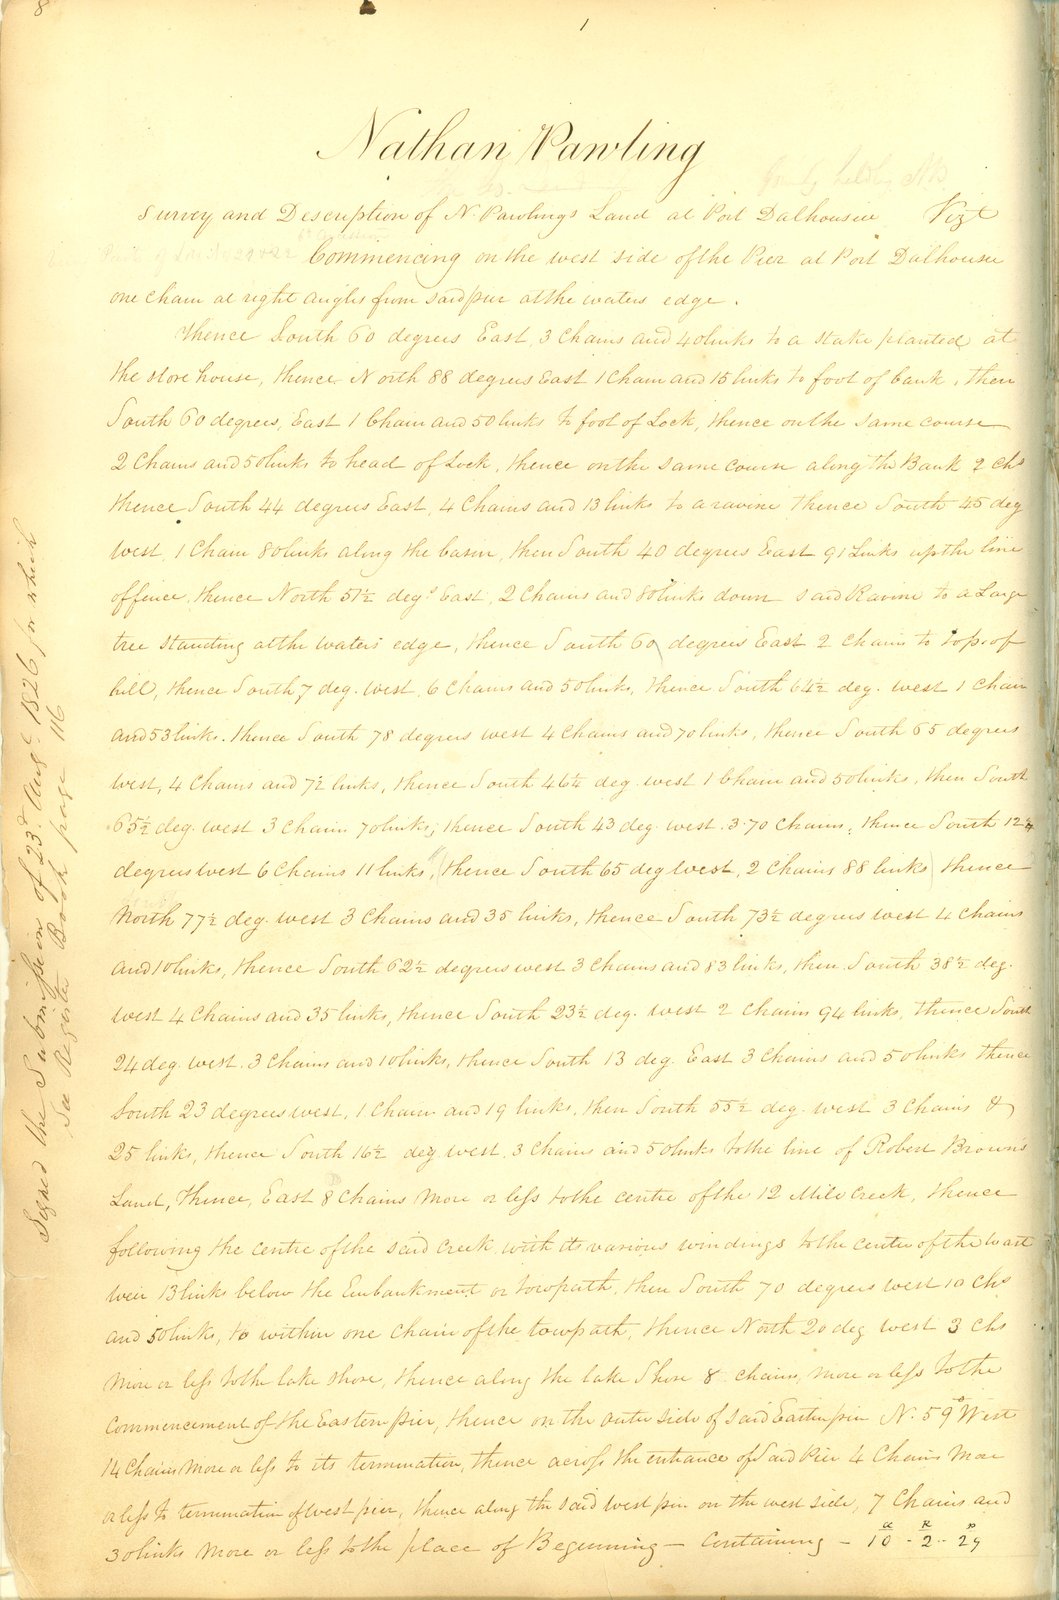 8
1
Nathan Pawling
Survey and Description of N. Pawlings Land at Port Dalhousie Vizt
Commencing on the west side of the Pier at Port Dalhousie
one chain at right angles from said pier at the waters edge.
Thence South 60 degrees East, 3 Chains and 40 links to a stake planted at
the store house, thence North 88 degrees East 1 Chain and 15 links to foot of bank, then
South 60 degrees, East 1 Chain and 50 links to foot of Lock, thence on the same course
2 Chains and 50 links to head of Lock, thence on the same course along the Bank 2 chs
thence South 44 degrees East, 4 Chains and 13 links to a ravine thence South 45 deg
west, 1 Chain 80 links along the basin, then South 40 degrees East 91 Links up the line
of fence, thence North 51½ degs East, 2 Chains and 80 links down said Ravine to a Large
tree standing at the waters edge, thence South 60 degrees East 2 Chains to top of
hill, thence South 7 deg. west, 6 Chains and 50 links, thence South 64½ deg. west 1 Chain
and 53 links. thence South 78 degrees west 4 Chains and 70 links, thence South 65 degrees
west, 4 Chains and 72 links, thence South 46¼ deg. west 1 Chain and 50 links, then South
65½ deg. west 3 Chains 70 links, thence South 43 deg. west. 3.70 Chains, thence South 12¼
degrees west 6 Chains 11 links, (thence South 65 deg west, 2 Chains 88 links) thence
North 77½ deg. west 3 Chains and 35 links, thence South 73½ degrees west 4 Chains
and 10 links, thence South 62½ degrees west 3 Chains and 83 links, then South 38½ deg.
west 4 Chains and 35 links, thence South 23½ deg. west 2 Chains 94 links, thence South
24 deg. west. 3 Chains and 10 links, thence South 13 deg. East 3 Chains and 50 links thence
South 23 degrees west, 1 Chain and 19 links, then South 55½ deg. west 3 Chains &
25 links, thence South 16½ deg west, 3 Chains and 50 links to the line of Robert Browns
Land, Thence, East 8 Chains more or less to the centre of the 12 Mile Creek, thence
following the centre of the said creek with its various windings to the centre of the wast
weir 13 links below the Embankment or towpath, then South 70 degrees west 10 Chs
and 50 links, to within one chain of the towpath, thence North 20 deg west 3 Chs
more or less to the lake shore, thence along the lake Shore 8 chains, more or less to the
commencement of the Eastern pier, thence on the outer side of said Eastern pier N. 59° West
14 Chains more or less to its termination, thence across the entrance of Said Pier 4 Chains more
or less to termination of west pier, thence along the said west pier on the west side, 7 Chains and
30 links more or less to the place of Beginning — Containing — A 10 - R 2 - P 29
Signed the Submission of 23d Augt 1826 for which
See Register Book page 116